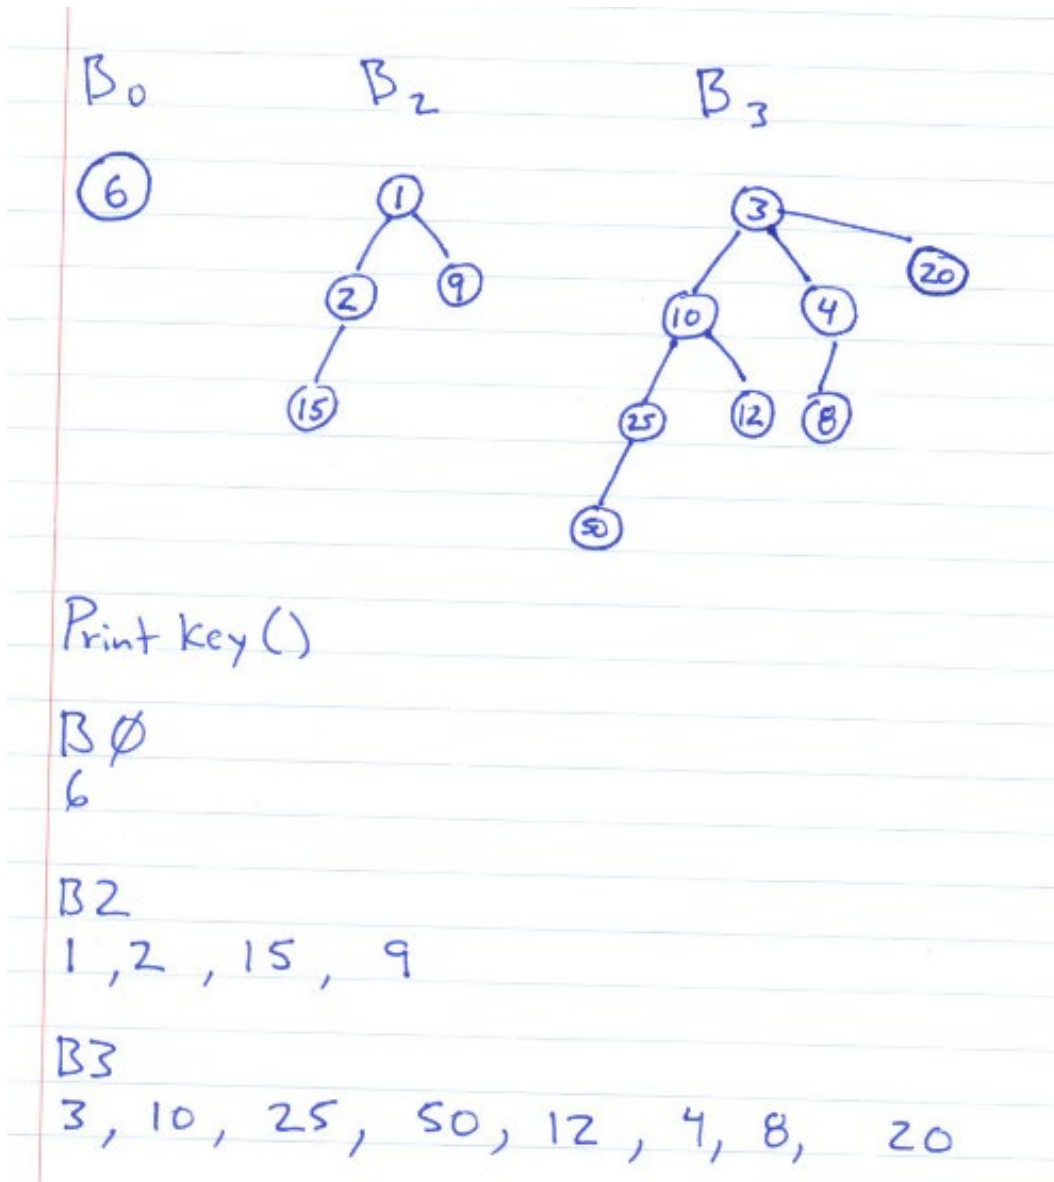 B0 B2 B3
6 1 3
20
2 9 10 4
15 25 12 8
50
Print key()
BØ
6
B2
1, 2, 15, 9
B3
3, 10, 25, 50, 12, 4, 8, 20